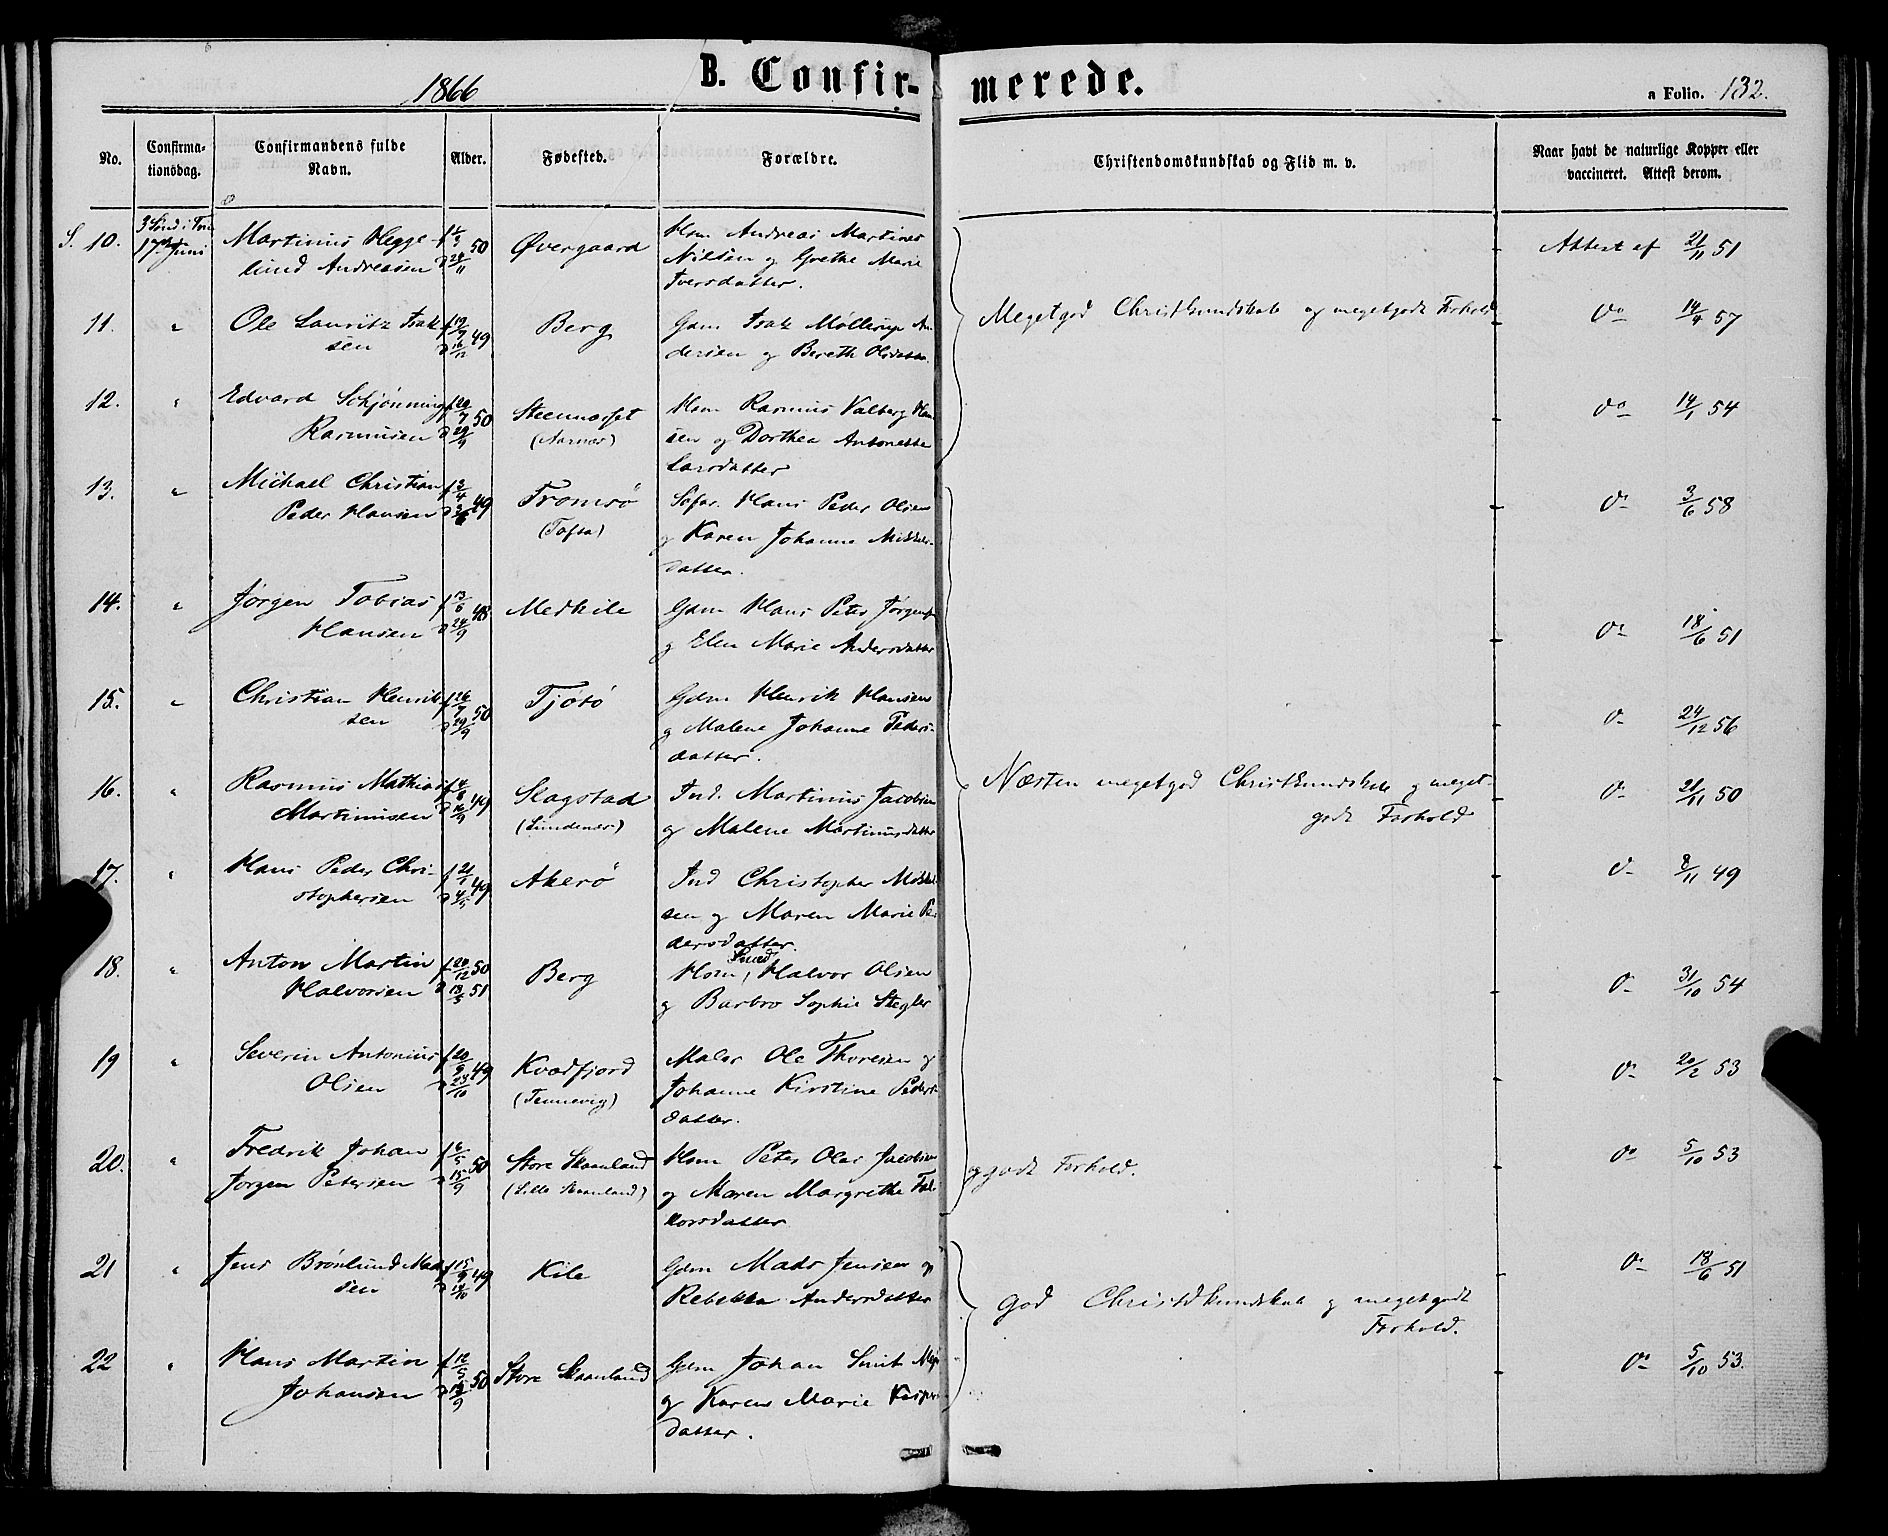 1866
B. Confirmerede.
a Folio. 132.
No.
Confirmationsdag.
Confirmandens fulde Navn.
Alder.
Fødested.
Forældre.
Christendomskundskab og Flid m. v.
Naar havt de naturlige Kopper eller vaccineret. Attest derom.
S. 10. 3 Sønd: i Trin 17 Juni Martinus Heggelund Andreasen f 50 d 11 Øvergaard Hsm Andreas Martines Nilsen og Grethe Marie Iversdatter. Attest af 21/11 51
11. " Ole Lauritz Isaksen f d 49 Berg Gdm Isak Møllerup Andersen og Bereth Olsdatter. Megetgod Christkundskab og megetgodt Forhold do 14/4 57
12. " Edvard Schjønning Rasmusen f 20/7 d 29/9 50 Steennæsset (Aarnæs) Hsm Rasmus Valberg Hansen og Dorthea Antonette Larsdatter do 14/1 54
13. " Michael Christian Peder Hansen f 3/4 d 49 Tromsø (Tofta) Sefar. Hans Peder Olsen og Karen Johanne Mikkelsdatter. do 3/6 58
14. " Jørgen Tobias Hansen f 13/6 d 24/9 48 Medkile Gdm Hans Peter Jørgensen og Elen Marie Andersdatter do 18/6 51
15. " Christian Henriksen f 26/7 d 29/9 50 Tjøtø Gdm Henrik Hansen og Malene Johanne Pedersdatter. do 24/12 56
16. " Rasmus Mathias Martinusen f d 16/9 49 Slagstad (Lundenes) Ind. Martinus Jacobsen og Malene Martinusdatter Næsten megetgod Christkundskab og megetgodt Forhold do 21/11 50
17. " Hans Peder Christophersen f 21/1 d 4/5 49 Akerø Ind Christopher Mikkelsen og Maren Marie Pedersdatter. do 8/11 49
18. " Anton Martin Halvorsen f 20/12 50 d 18/5 51 Berg Hsm, Smed Halvor Olsen og Barbro Sophie Stegler do 31/10 54
19 " Severin Antonius Olsen f 20/9 d 23/10 49 Kvædfjord (Tennevig) Maler Ole Thoresen og Johanne Kirstine Pedersdatter. do 20/2 53
20. " Fredrik Johan Jørgen Petersen f 6/5 d 15/9 50 Store Skaanland (Lille Skaanland) Hsm Peter Olai Jacobsen og Maren Margrethe Falkorsdatter og godt Forhold. do 5/10 53
21 " Jens Brønlund Madsen f 15/9 d 14/10 49 Kile Gdm Mads Jensen og Rebekka Andersdatter God Christdkundskab og megetgodt Forhold. do 18/6 51
22 " Hans Martin Johansen f 12/5 d 50 Store Skaanland Gdm Johan Smit og Karen Marie Kaspersdatter. do 5/10 53.